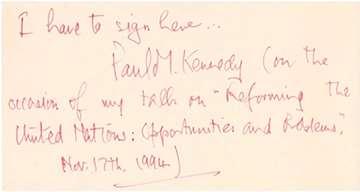 I have to sign here...
Paul M. Kennedy (on the
occasion of my talk on "Reforming the
United Nations: Opportunities and Problems",
Nov. 17th, 1994)